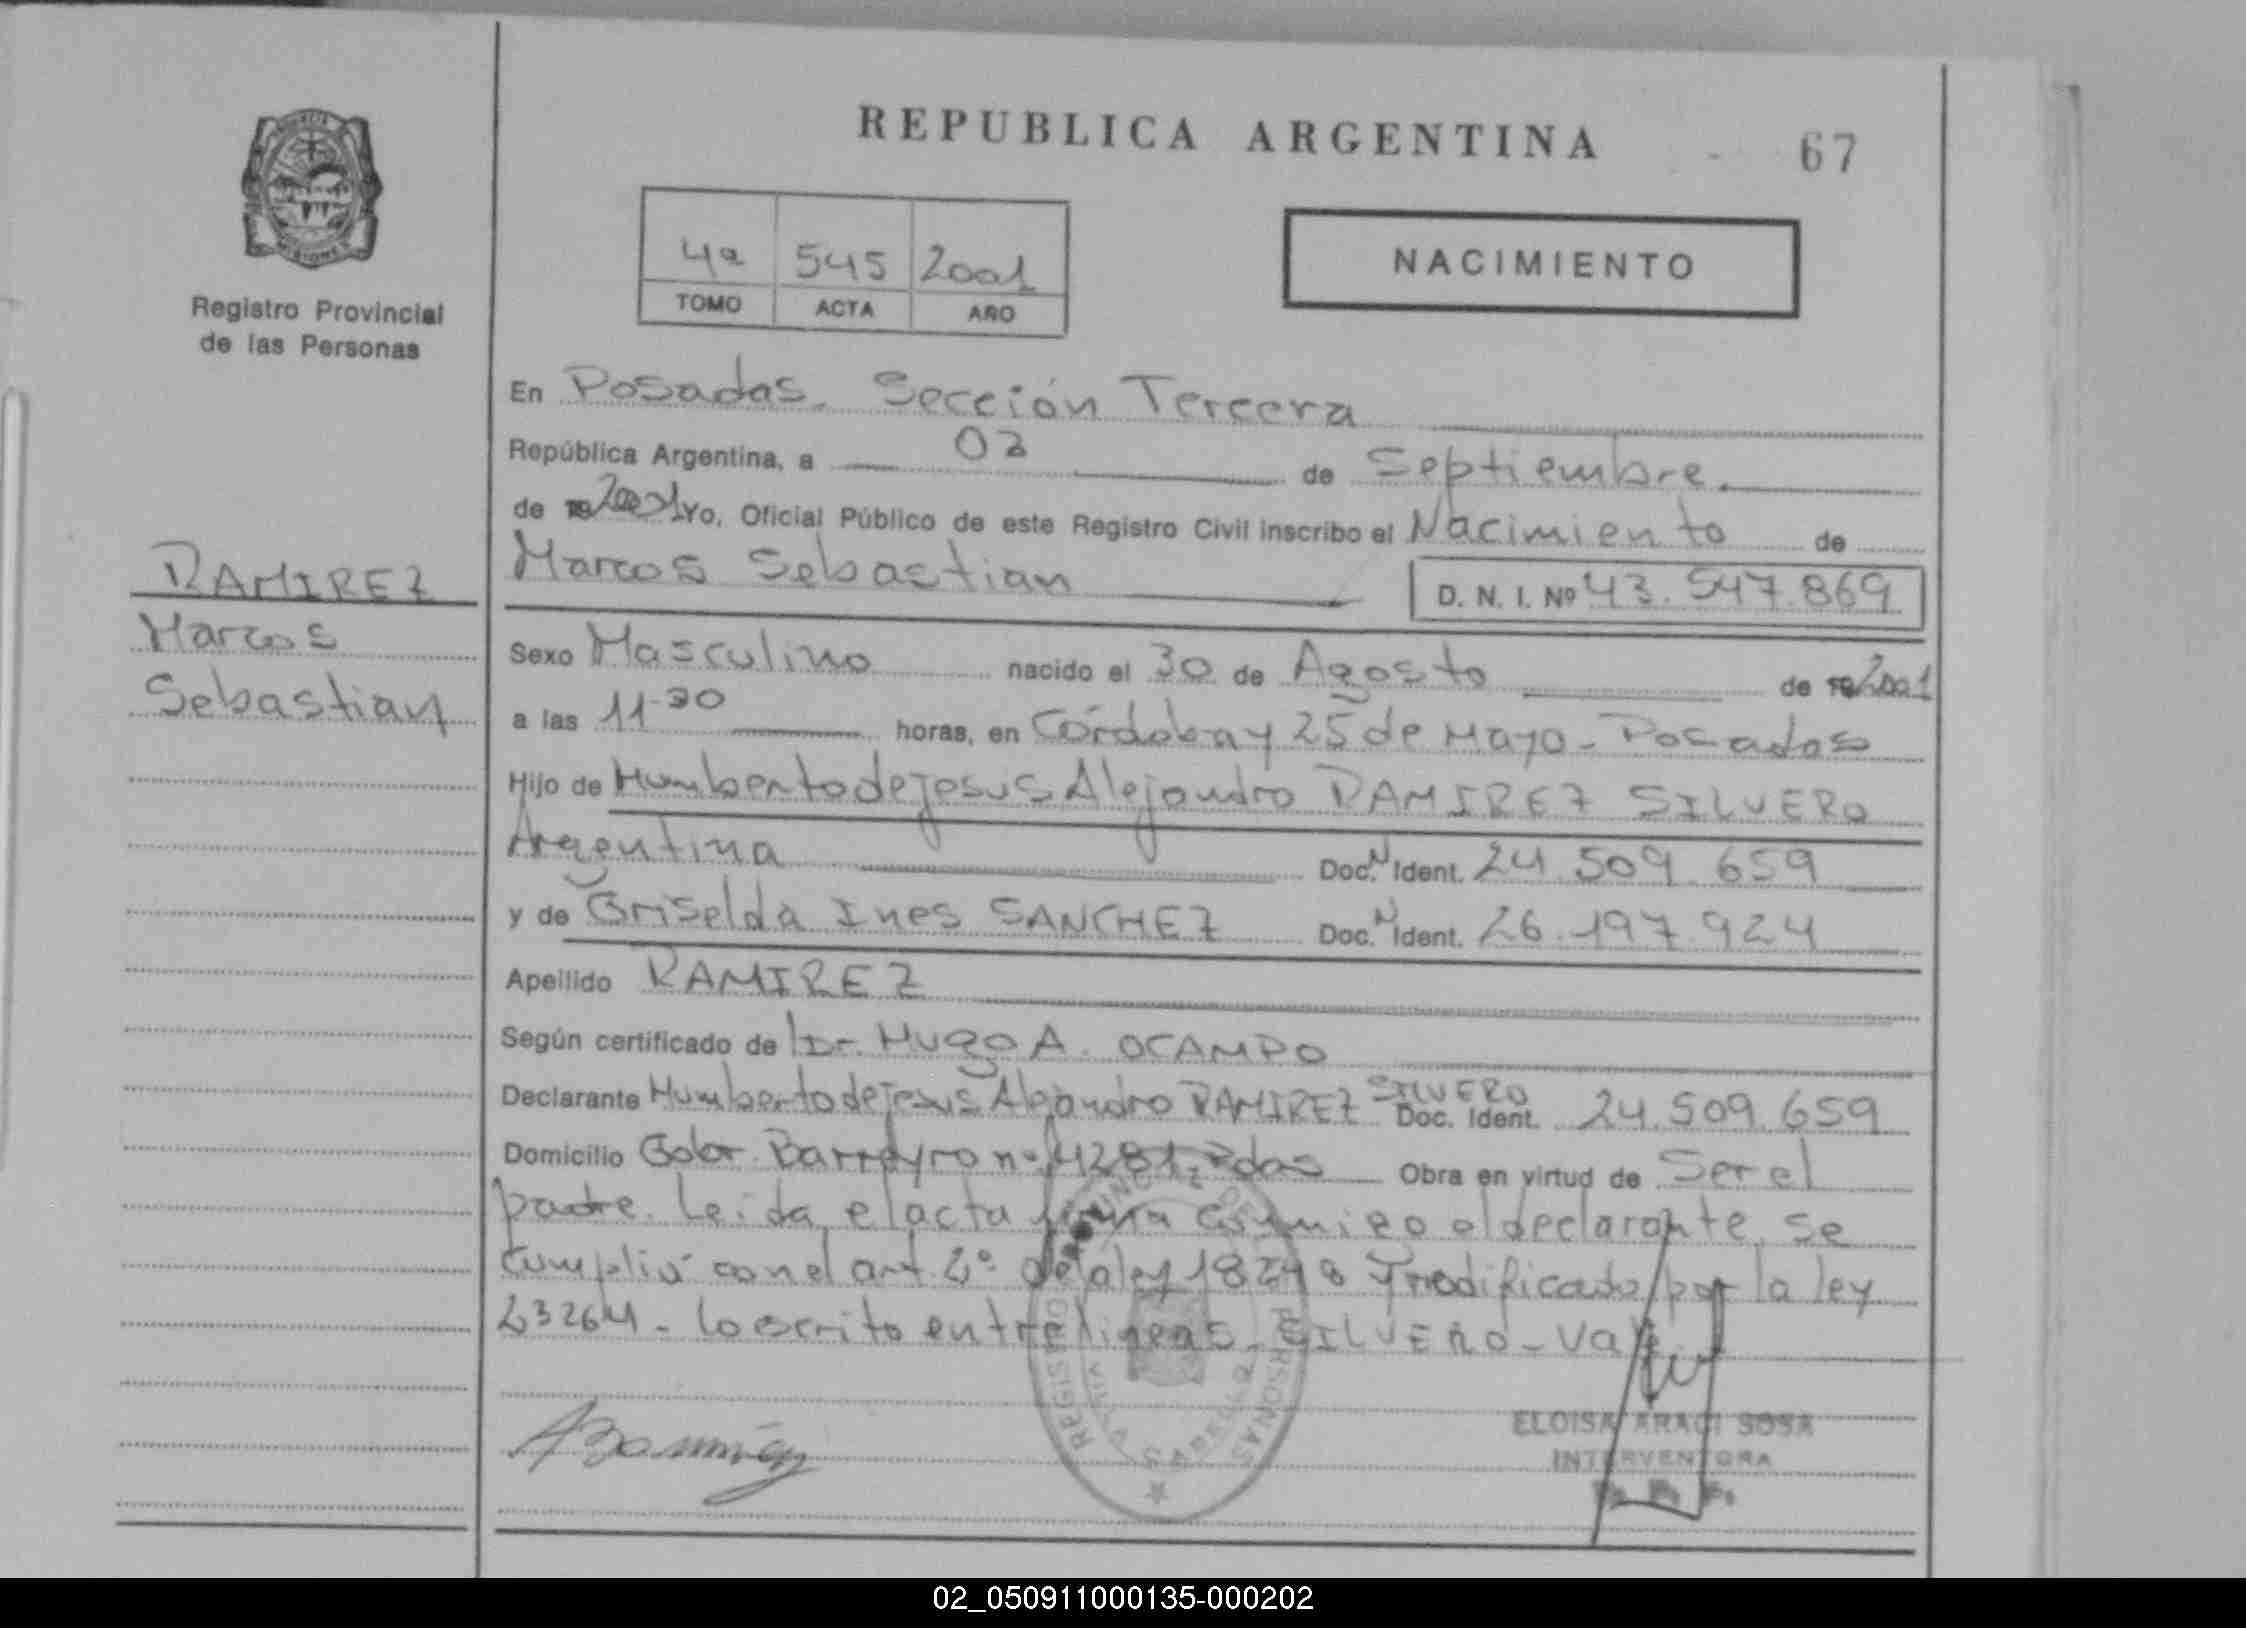 REPUBLICA ARGENTINA
67
Registro Provincial
de las Personas
4ª 545 2001
TOMO ACTA AÑO
NACIMIENTO
En Posadas. Sección Tercera
República Argentina, a 03 de Septiembre.
de 19 2001 Yo, Oficial Público de este Registro Civil inscribo el Nacimiento de
Marcos Sebastian D. N. I. Nº 43.547.869
RAMIREZ
Marcos
Sebastian
Sexo Masculino nacido el 30 de Agosto de 19 2001
a las 11-30 horas, en Córdoba y 25 de Mayo - Posadas
Hijo de Humberto de Jesus Alejandro RAMIREZ SILVERO
Argentina Doc. N Ident. 24.509.659
y de Griselda Ines SANCHEZ Doc. N Ident. 26.197.924
Apellido RAMIREZ
Según certificado de Dr. Hugo A. OCAMPO
Declarante Humberto de Jesus Alejandro RAMIREZ SILVERO Doc. Ident. 24.509.659
Domicilio Gdor. Barreyro nº 4281 - Pdas Obra en virtud de Ser el
padre. Leida el acta firma conmigo el declarante, se
cumplió con el art. 2º de la ley 18248 modificado por la ley
23264 - lo escrito entre lineas - SILVERO - Vale
REGISTRO PERSONAS
ELOISA ARACI SOSA
INTERVENTORA
02_050911000135-000202